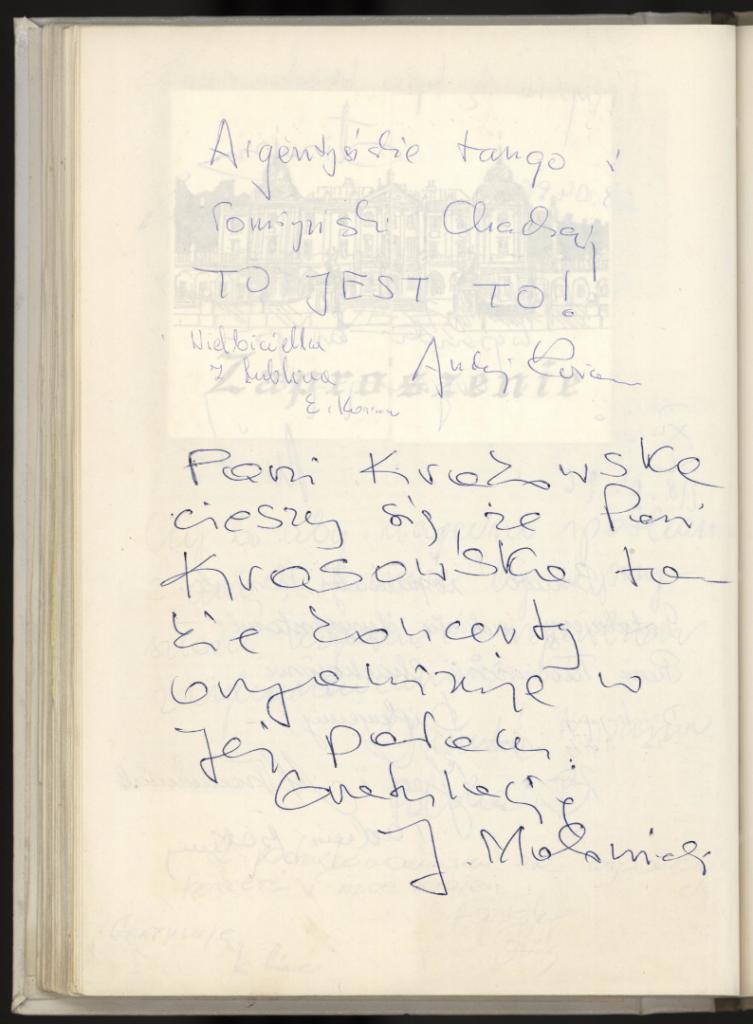 Argentyńskie tango i
Tomijński Chadzaj
TO JEST TO!
Wielbicielka
z Lublina
E. Koran
Andrzej
Zaproszenie
Pani Krasowska
cieszy się, że Pani
Krasowska ta-
kie koncerty
organizuje w
Jej pałacu.
Gratulacje
J. Malarnicki